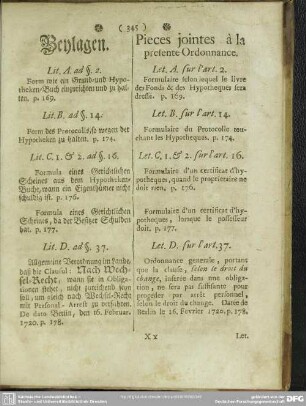 ( 345 )
Beylagen.
Lit. A. ad §. 2.
Form wie ein Grund-und Hypo-
theken-Buch einzurichten und zu hal-
ten. p. 169.
Lit. B. ad §. 14.
Form des Protocolls, so wegen der
Hypotheken zu halten. p. 174.
Lit. C. 1. & 2. ad §. 16.
Formula eines Gerichtlichen
Scheines aus dem Hypotheken-
Buche, wann ein Eigenthümer nicht
schuldig ist. p. 176.
Formula eines Gerichtlichen
Scheines, da der Besitzer Schulden
hat. p. 177.
Lit. D. ad §. 37.
Allgemeine Verordnung im Lande,
daß die Clausul: Nach Wech-
sel-Recht, wann sie in Obliga-
tionen stehet, nicht zureichend seyn
soll, um gleich nach Wechsel-Recht
mit Personal-Arrest zu verfahren.
De dato Berlin, den 16. Februar.
1720. p. 178.
Pieces jointes à la
presente Ordonnance.
Let. A. sur l'art. 2.
Formulaire selon lequel le livre
des Fonds & des Hypotheques sera
dressé. p. 169.
Let. B. sur l'art. 14.
Formulaire du Protocolle tou-
chant les Hypotheques. p. 174.
Let. C. 1. & 2. sur l'art. 16.
Formulaire d'un certificat d'hy-
potheque, quand le proprietaire ne
doit rien. p. 176.
Formulaire d'un certificat d'hy-
potheque, lorsque le possesseur
doit. p. 177.
Let. D. sur l'art. 37.
Ordonnance generale, portant
que la clause, selon le droit du
change, inserée dans une obliga-
tion, ne sera pas suffisante pour
proceder par arrêt personnel,
selon le droit du change. Datée de
Berlin le 16. Fevrier 1720. p. 178.
X x
Let.